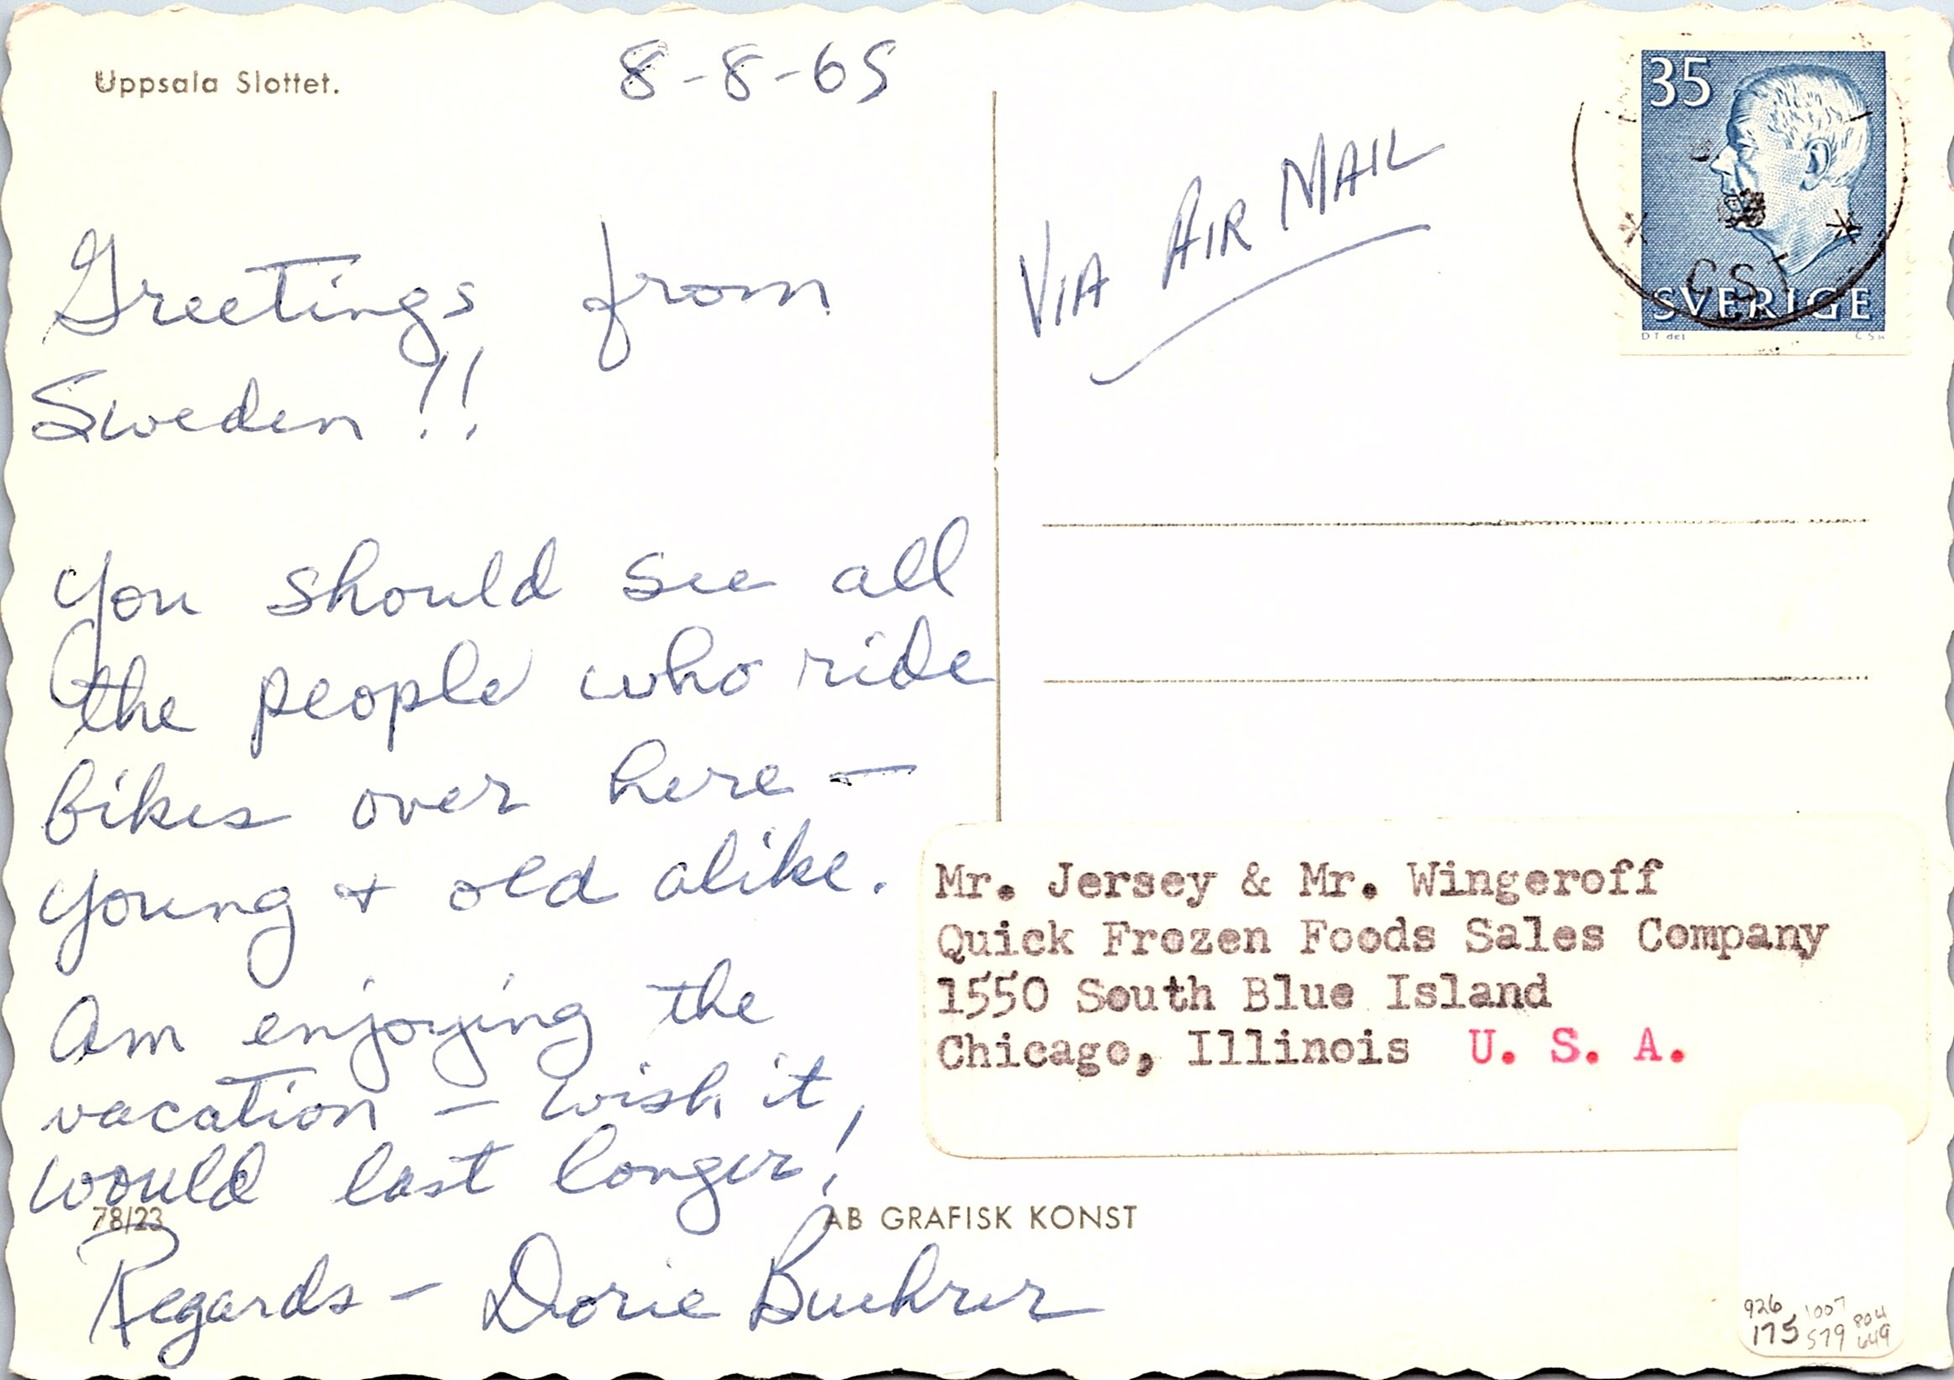 Uppsala Slottet.
8-8-65
Greetings from
Sweden!!
You should see all
the people who ride
bikes over here —
young & old alike.
Am enjoying the
vacation — wish it
would last longer!
78/23
AB GRAFISK KONST
Regards — Dorie Buehrer
VIA AIR MAIL
35
SVERIGE
DT del
Mr. Jersey & Mr. Wingeroff
Quick Frozen Foods Sales Company
1550 South Blue Island
Chicago, Illinois U. S. A.
926 1007 804
175 579 649